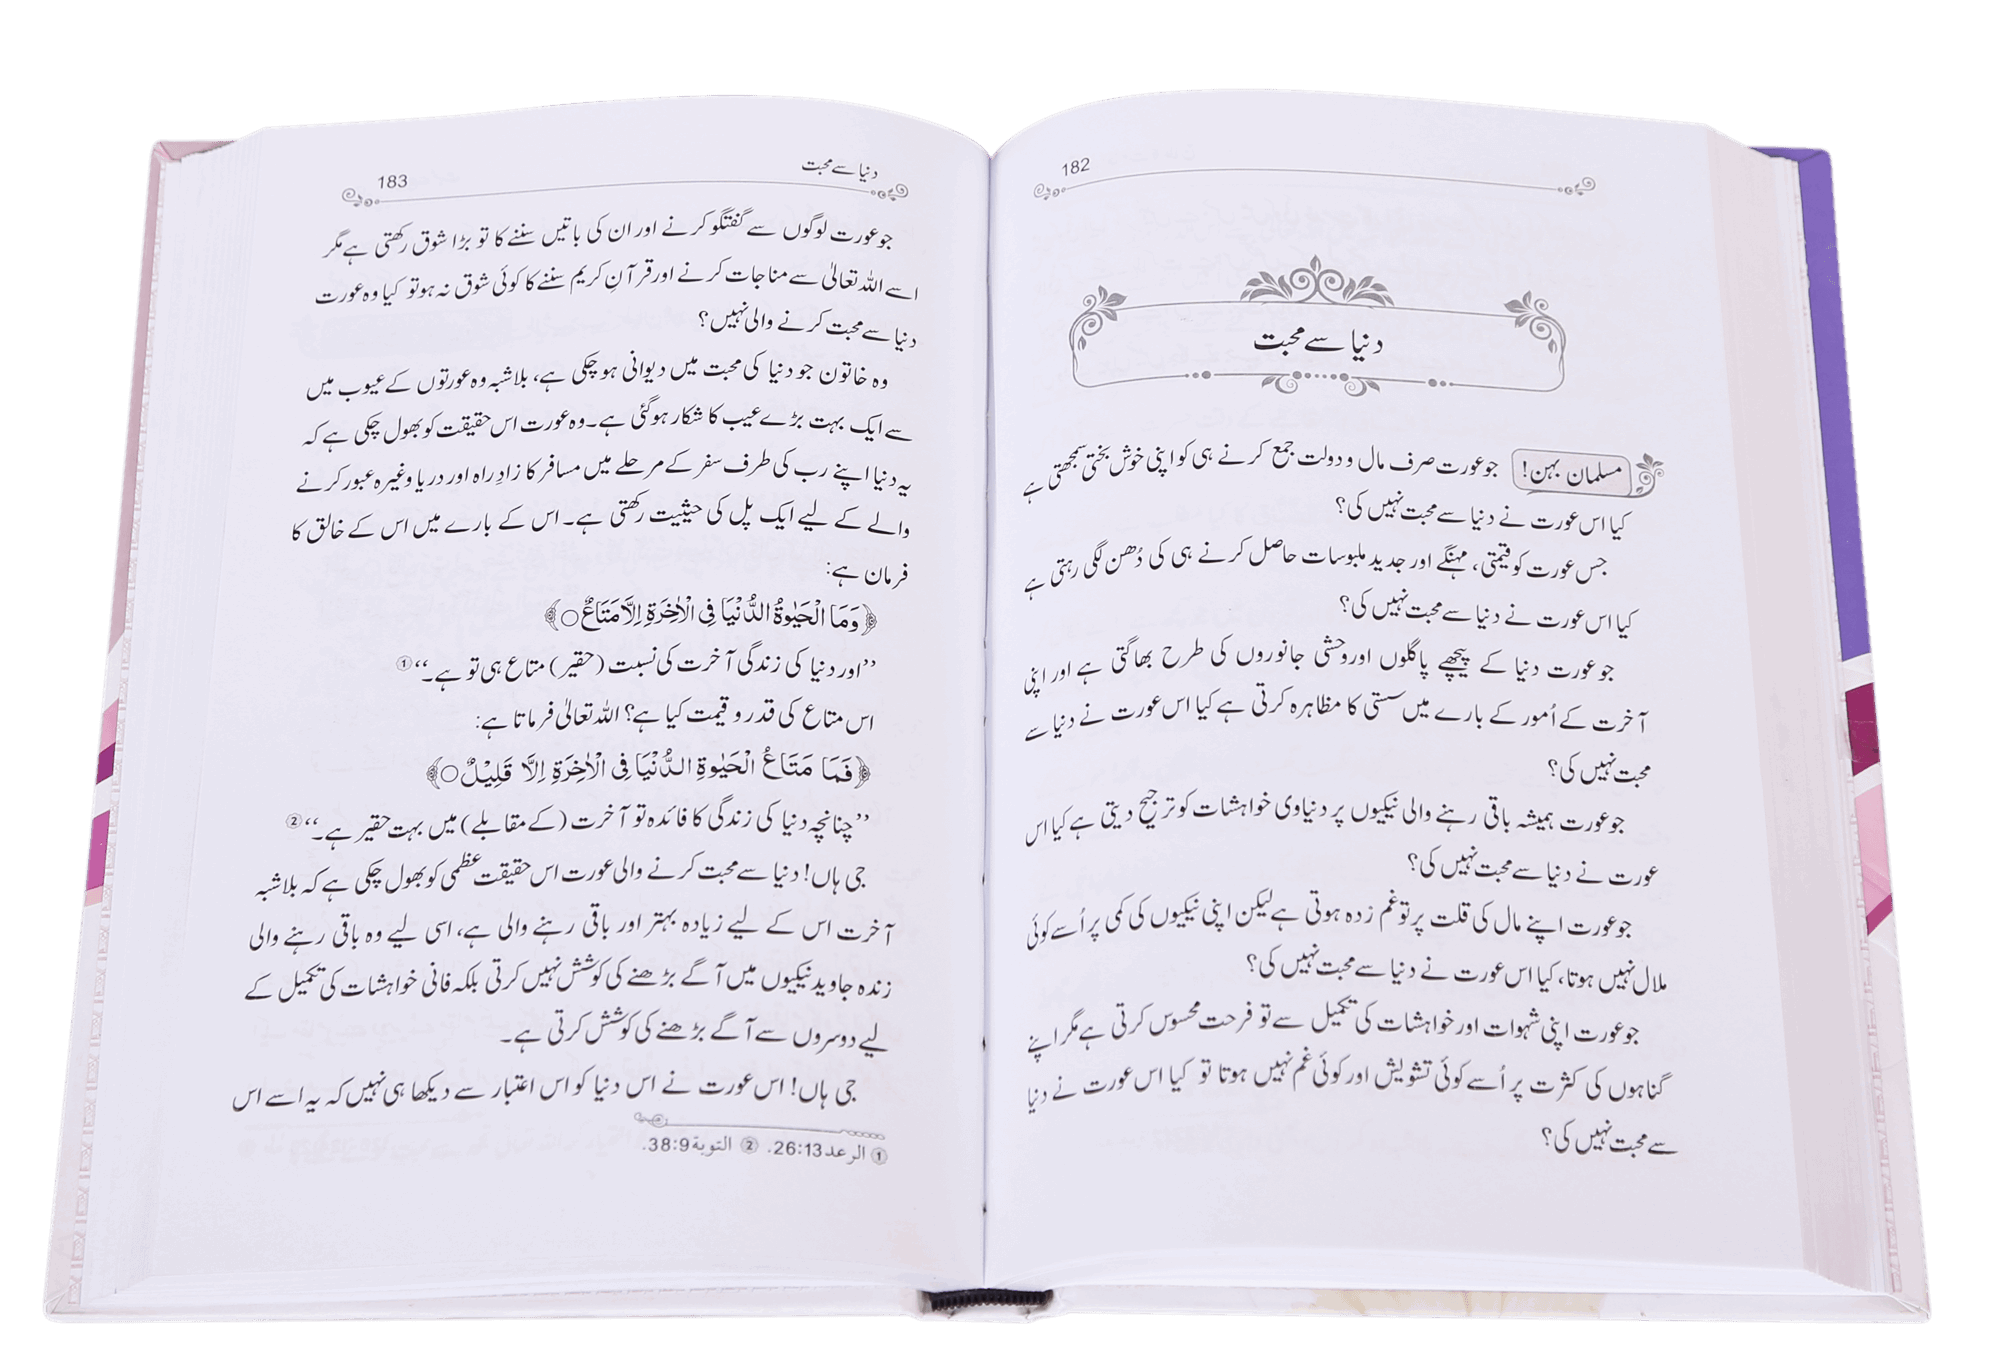 182
دنیا سے محبت
مسلمان بہن! جو عورت صرف مال و دولت جمع کرنے ہی کو اپنی خوش بختی سمجھتی ہے
کیا اس عورت نے دنیا سے محبت نہیں کی؟
جس عورت کو قیمتی، مہنگے اور جدید ملبوسات حاصل کرنے ہی کی دُھن لگی رہتی ہے
کیا اس عورت نے دنیا سے محبت نہیں کی؟
جو عورت دنیا کے پیچھے پاگلوں اور وحشی جانوروں کی طرح بھاگتی ہے اور اپنی
آخرت کے اُمور کے بارے میں سستی کا مظاہرہ کرتی ہے کیا اس عورت نے دنیا سے
محبت نہیں کی؟
جو عورت ہمیشہ باقی رہنے والی نیکیوں پر دنیاوی خواہشات کو ترجیح دیتی ہے کیا اس
عورت نے دنیا سے محبت نہیں کی؟
جو عورت اپنے مال کی قلت پر تو غم زدہ ہوتی ہے لیکن اپنی نیکیوں کی کمی پر اُسے کوئی
ملال نہیں ہوتا، کیا اس عورت نے دنیا سے محبت نہیں کی؟
جو عورت اپنی شہوات اور خواہشات کی تکمیل سے تو فرحت محسوس کرتی ہے مگر اپنے
گناہوں کی کثرت پر اُسے کوئی تشویش اور کوئی غم نہیں ہوتا تو کیا اس عورت نے دنیا
سے محبت نہیں کی؟
دنیا سے محبت 183
جو عورت لوگوں سے گفتگو کرنے اور ان کی باتیں سننے کا تو بڑا شوق رکھتی ہے مگر
اسے اللہ تعالیٰ سے مناجات کرنے اور قرآنِ کریم سننے کا کوئی شوق نہ ہو تو کیا وہ عورت
دنیا سے محبت کرنے والی نہیں؟
وہ خاتون جو دنیا کی محبت میں دیوانی ہو چکی ہے، بلاشبہ وہ عورتوں کے عیوب میں
سے ایک بہت بڑے عیب کا شکار ہو گئی ہے۔ وہ عورت اس حقیقت کو بھول چکی ہے کہ
یہ دنیا اپنے رب کی طرف سفر کے مرحلے میں مسافر کا زادِ راہ اور دریا وغیرہ عبور کرنے
والے کے لیے ایک پل کی حیثیت رکھتی ہے۔ اس کے بارے میں اس کے خالق کا
فرمان ہے:
﴿وَمَا الْحَيٰوةُ الدُّنْيَا فِي الْاٰخِرَةِ اِلَّا مَتَاعٌ○﴾
’’اور دنیا کی زندگی آخرت کی نسبت (حقیر) متاع ہی تو ہے۔‘‘①
اس متاع کی قدر و قیمت کیا ہے؟ اللہ تعالیٰ فرماتا ہے:
﴿فَمَا مَتَاعُ الْحَيٰوةِ الدُّنْيَا فِي الْاٰخِرَةِ اِلَّا قَلِيْلٌ○﴾
’’چنانچہ دنیا کی زندگی کا فائدہ تو آخرت (کے مقابلے) میں بہت حقیر ہے۔‘‘②
جی ہاں! دنیا سے محبت کرنے والی عورت اس حقیقت عظمی کو بھول چکی ہے کہ بلاشبہ
آخرت اس کے لیے زیادہ بہتر اور باقی رہنے والی ہے، اسی لیے وہ باقی رہنے والی
زندہ جاوید نیکیوں میں آگے بڑھنے کی کوشش نہیں کرتی بلکہ فانی خواہشات کی تکمیل کے
لیے دوسروں سے آگے بڑھنے کی کوشش کرتی ہے۔
جی ہاں! اس عورت نے اس دنیا کو اس اعتبار سے دیکھا ہی نہیں کہ یہ اسے اس
① الرعد 26:13. ② التوبة 38:9.